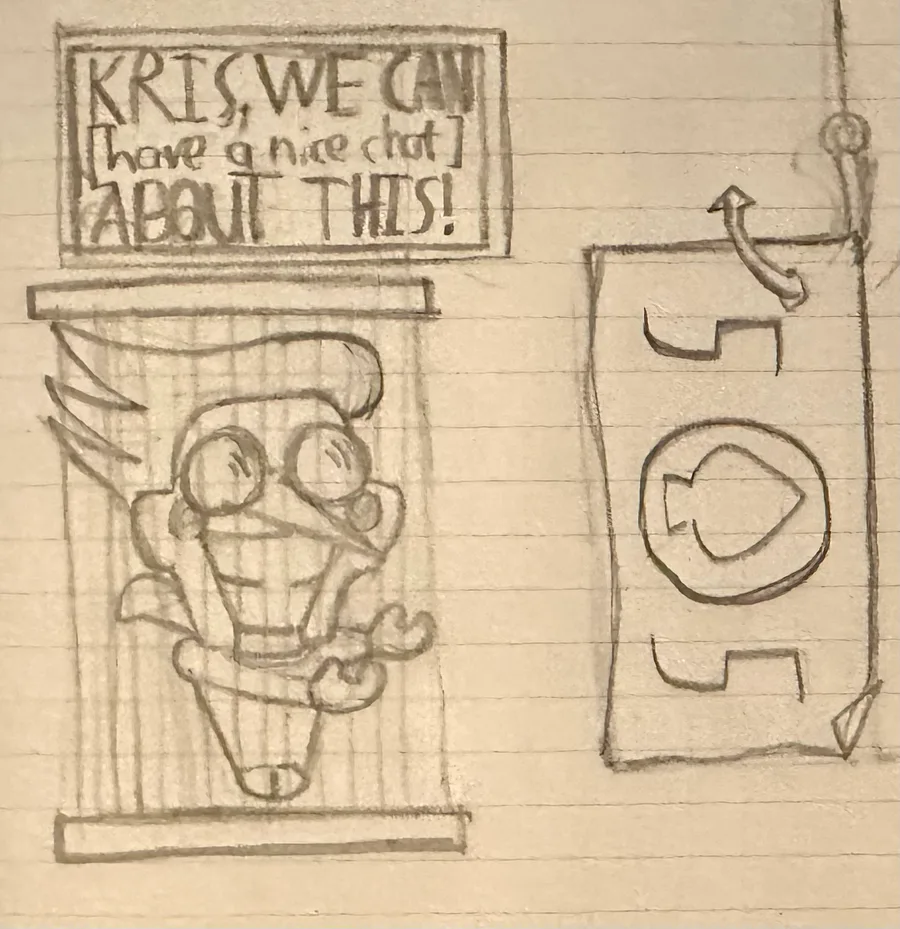 KRIS, WE CAN
[have a nice chat]
ABOUT THIS!
5 5